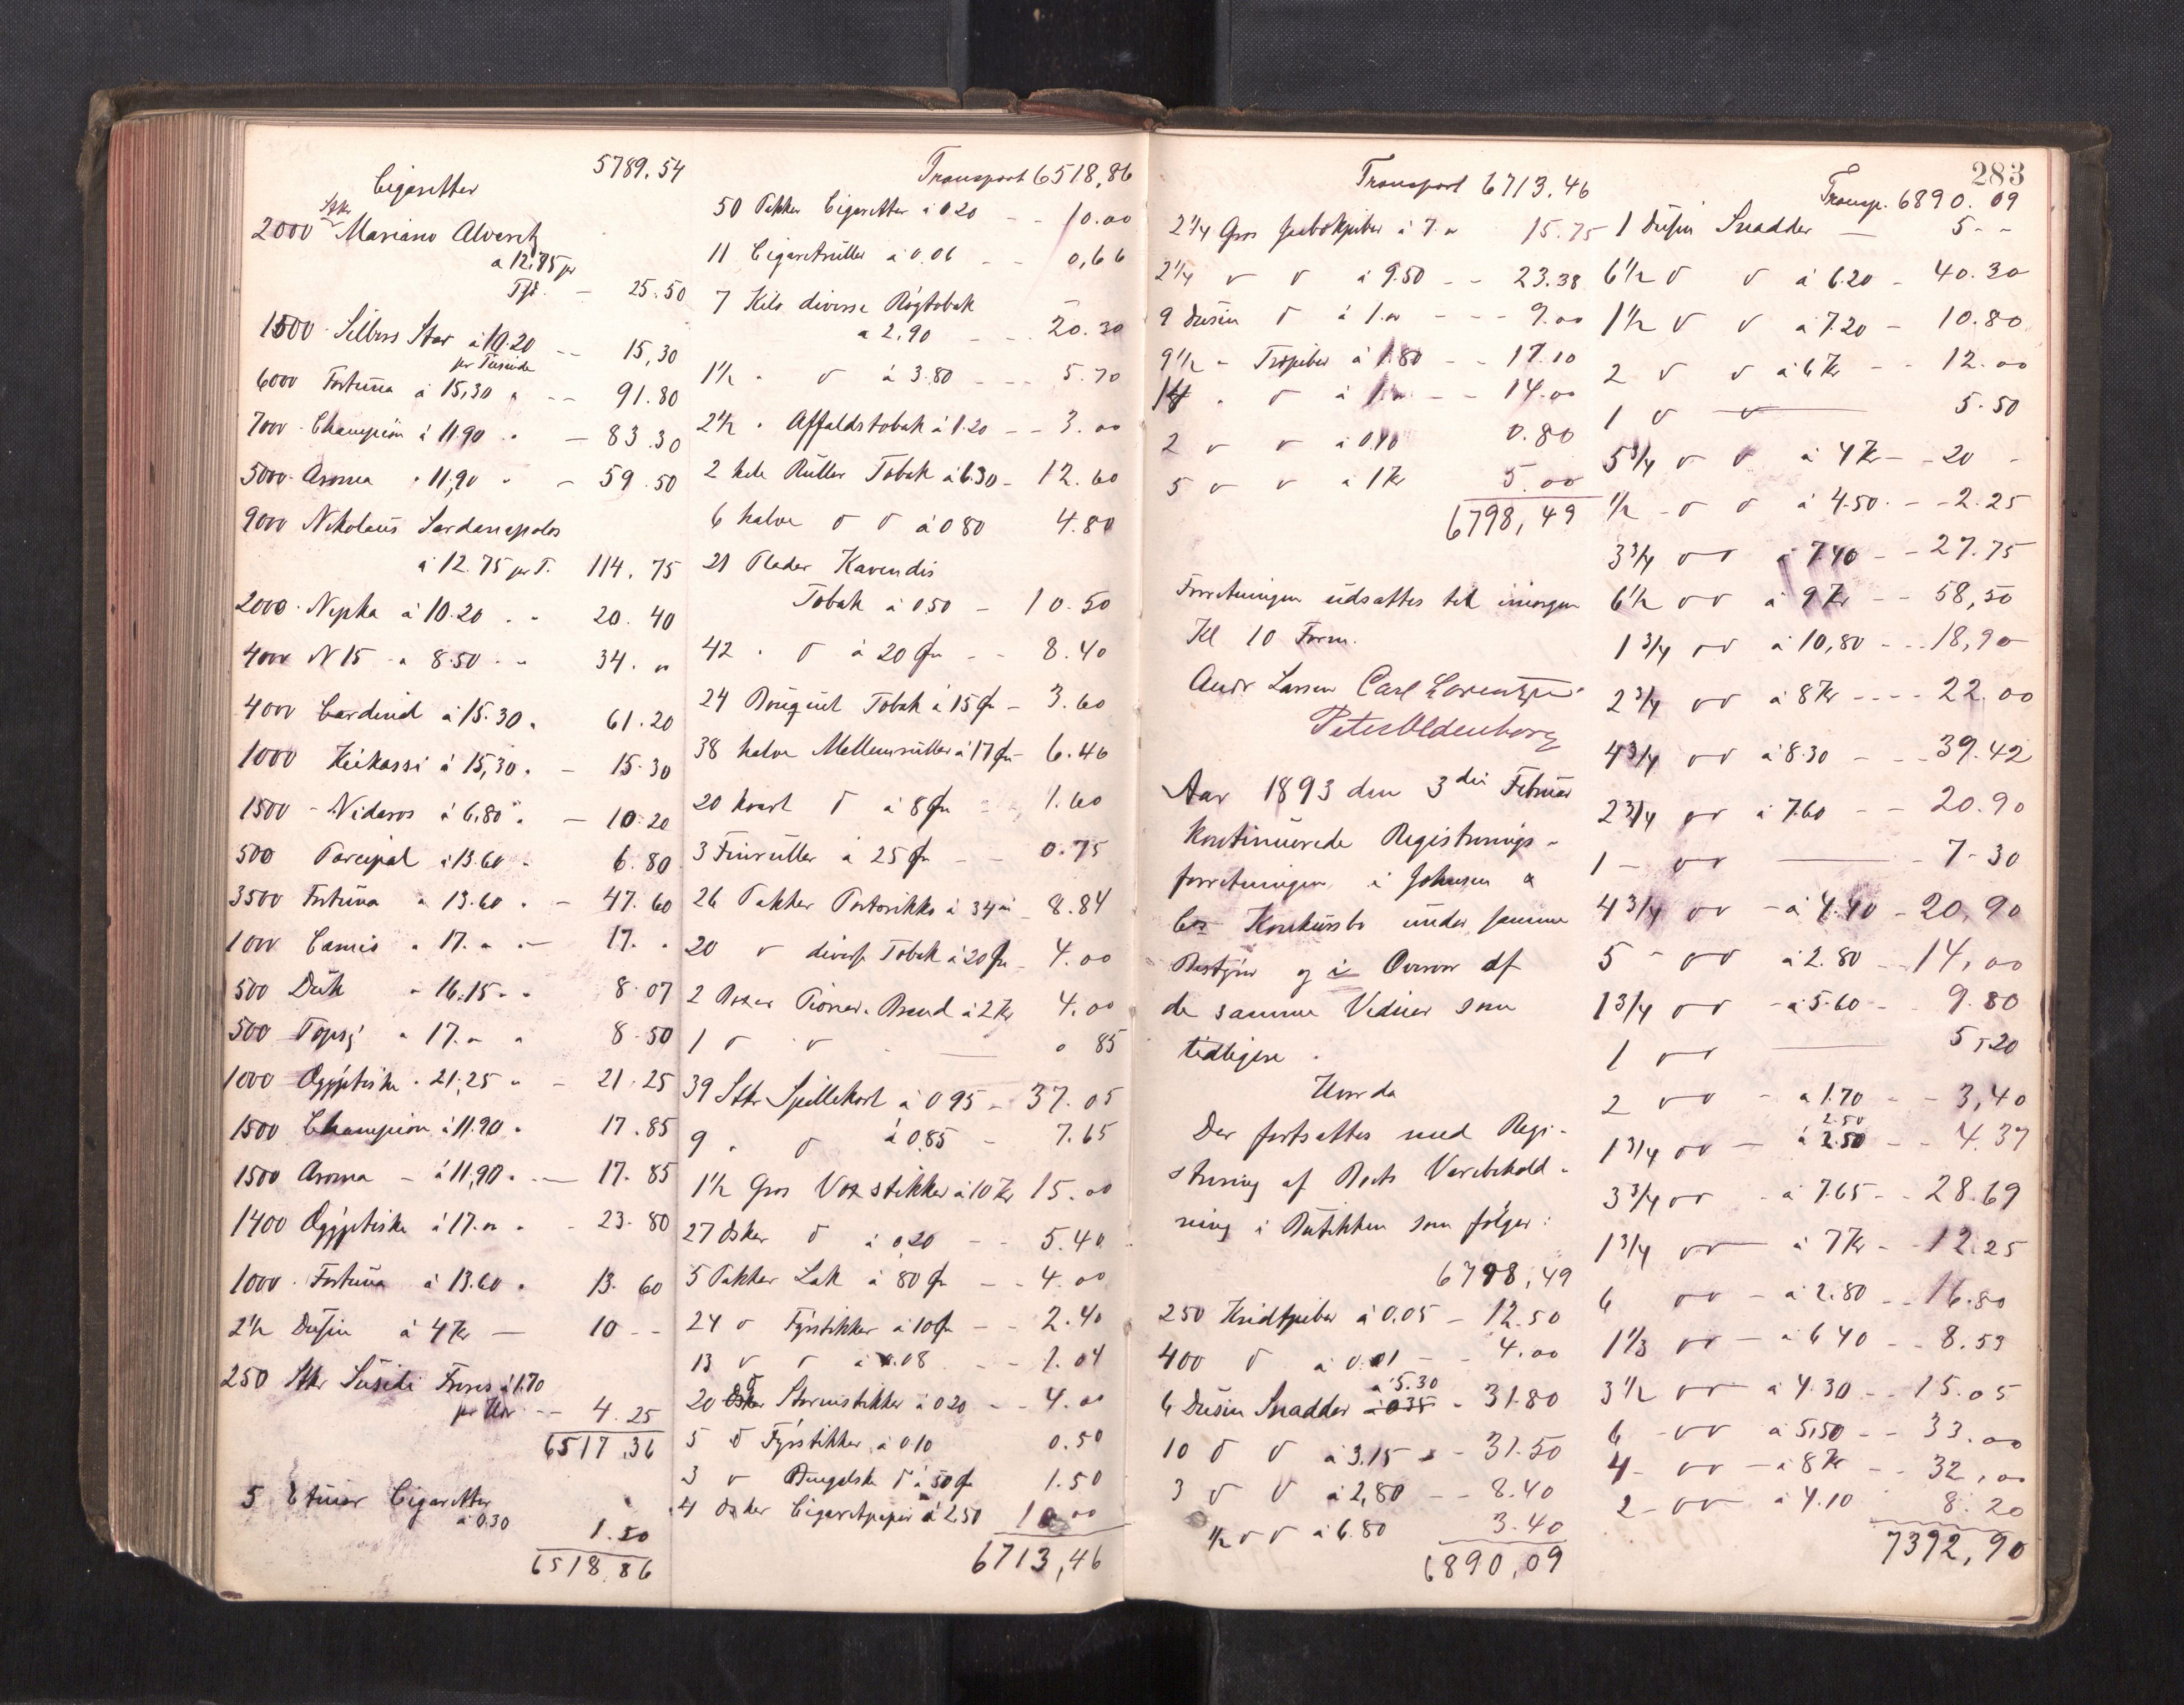 5789.54
Cigaretter
2000 Stkr Mariano Alvarez
a 12,75 pr
Tsd. — 25.50
1500 - Silbers Star à 10.20 -- 15,30
pr Tusinde
6000 Fortuna à 15,30 " -- 91.80
7000 - Champion à 11.90 " — 83.30
5000 - Aroma " 11,90 " - 59.50
9000 Nikolaus Sardanapolos
à 12.75 pr T. 114.75
2000 - Nepka à 10.20 " " 20.40
4000 N 15 - a 8.50 - " 34. "
4000 Cardinal à 15.30 " 61.20
1000 Keikassi à 15,30 " - 15.30
1500 - Nidaros à 6,80 " — 10.20
500 Parcipal à 13.60 " 6.80
3500 Fortuna a 13.60 " - 47.60
1000 Camis a 17. " " — 17. "
500 Duk " 16.15 " " 8.07
500 Topsy " 17. " " 8.50
1000 Ægyptiske " 21,25 " - 21.25
1500 Champion à 11.90 " 17.85
1500 Aroma - à 11,90 " — 17.85
1400 Ægyptiske à 17. " " - 23.80
1000 - Fortuna à 13.60 " 13.60
2½ Dusin à 4 Kr — 10 - -
250 Stkr Susidi Freres à 1.70
pr Hdr -- 4.25
6517,36
5 Etuier Cigaretter
à 0.30 1.50
6518,86
Transport 6518,86
50 Pakker Cigaretter à 0.20 - - 10.00
11 Cigaretruller à 0.06 - - 0,66
7 Kilo diverse Røgtobak
a 2,90 - - - 20.30
1½ " v à 3.80 - - - 5.70
2½ " Affaldstobak à 1.20 - - 3.00
2 hele Ruller Tobak à 6.30 - 12.60
6 halve v v à 0 80 4.80
21 Plader Kavendis
Tobak à 0.50 — 10.50
42 " v à 20 Øre - - 8.40
24 Bouquet Tobak à 15 Ø - 3.60
38 halve Mellemruller à 17 Ø - 6.46
20 kvart v à 8 Øre - - 1.60
3 Finruller à 25 Ø - - 0.75
26 Pakker Portorikko à 34 Ø - 8.84
20 v divers Tobak à 20 Ø - 4.00
2 Æsker Pioner-Brand à 2 Kr 4.00
1 v v — 0 85
39 Stkr Spillekort à 0 95 - 37.05
9 " v à 0.85 - 7.65
1½ Gros Voxstikker à 10 Kr 15.00
27 Æsker v à 0,20 - - 5.40
5 Pakker Lak à 80 Ø - - 4.00
24 v Fyrstikker à 10 Ø - - 2.40
13 v v à 0.08 - - 1.04
20 v Stormstikker à 0 20 - - 4.00
5 v Fyrstikker à 0.10 0.50
3 v Bengalske v à 50 Ø 1.50
4 Æsker Cigaretpapir à 2.50 10.00
6713,46
Transport 6713.46
2¼ Gros à 7. " 15.75
2¼ v v à 9.50 - - 23.38
9 Dusin v à 1. " - - - 9.00
9½ " Træpiber à 1.80 - - 17.10
14 " v à 1. " - - 14.00
2 v v à 0.40 0.80
5 v v à 1 Kr 5.00
6798,49
Forretningen udsattes til imorgen
Kl 10 Form.
Andr Larsen Carl Lorentzen
Peter Oldenborg
Aar 1893 den 3die Februar
kontinuerede Registrerings-
forretningen i Johnsen &
Co's Konkursbo under samme
Bestyrer og i Overvær af
de samme Vidner som
tidligere.
Hvorda
Der fortsattes med Regi-
strering af Boets Varebehold-
ning i Butikken som følger:
6798,49
250 Kridtpiber à 0.05 - 12.50
400 v à 0.01 - - 4.00
à 5.30
6 Dusin Snadder à 0 35 - 31.80
10 v v à 3.15 - - 31.50
3 v v à 2,80 - - 8.40
½ v v à 6.80 3.40
6890,09
283
Transp. 6890.09
1 Dusin Snadder — 5 - -
6½ v v à 6.20 - 40.30
1½ v v à 7.20 - 10.80
2 v v à 6 Kr - - 12.00
1 v v — 5.50
5¾ v v à 4 Kr - - 20 -
½ - v v à 4.50 - - - 2.25
3¾ v v à 7.40 - - 27.75
6½ v v à 9 Kr - - 58,50
1¾ v v à 10,80 - - - 18,90
2¾ v v à 8 Kr - - - - 22.00
4¾ v v à 8.30 - - - 39.42
2¾ v v à 7.60 - - 20.90
1 - v v — 7.30
4¾ v v - à 4.40 - 20,90
5 - v v à 2.80 - - 14,00
1¾ v v - à 5.60 - 9.80
1 v v — 5,20
2 v v - a 1.70 - - 3,40
2.50
1¾ v v — à 2.50 - - 4.37
3¾ v v - à 7.65 - - 28.69
1¾ v v — à 7 Kr - - 12.25
6 v v - à 2.80 - - 16.80
1⅓ v v — à 6 40 - - 8.53
3½ v v - à 4.30 - - 15.05
6 - v v à 5,50 - - 33.00
4 - v v - à 8 Kr - - 32,00
2 - v v à 4.10 8.20
7392,90